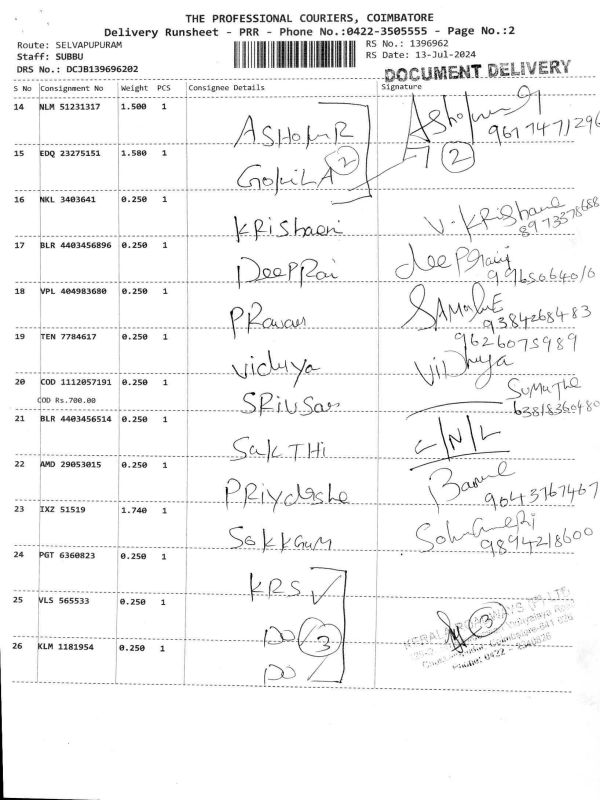 THE PROFESSIONAL COURIERS, COIMBATORE
Delivery Runsheet - PRR - Phone No.:0422-3505555 - Page No.:2
Route: SELVAPUPURAM
RS No.: 1396962
Staff: SUBBU
RS Date: 13-Jul-2024
DRS No.: DCJB139696202
DOCUMENT DELIVERY
S No Consignment No Weight PCS Consignee Details Signature
14 NLM 51231317 1.500 1
ASHOKUR
9617471296
15 EDQ 23275151 1.580 1
GOKILA 2 2
16 NKL 3403641 0.250 1
V. KRishane
8973378688
17 BLR 4403456896 0.250 1
DeePRai
9965064010
18 VPL 404983680 0.250 1
PRavav
9384268483
19 TEN 7784617 0.250 1
9626075989
Vidhya ViDhya
20 COD 1112057191 0.250 1
COD Rs.700.00
SRIVSav SuMuThe
63818360480
21 BLR 4403456514 0.250 1
SakTHi C/N/L
22 AMD 29053015 0.250 1
PRiydeshe
9043767467
23 IXZ 51519 1.740 1
SokkGum
9894218600
24 PGT 6360823 0.250 1
KRS
25 VLS 565533 0.250 1
DO 3 3
26 KLM 1181954 0.250 1
DO